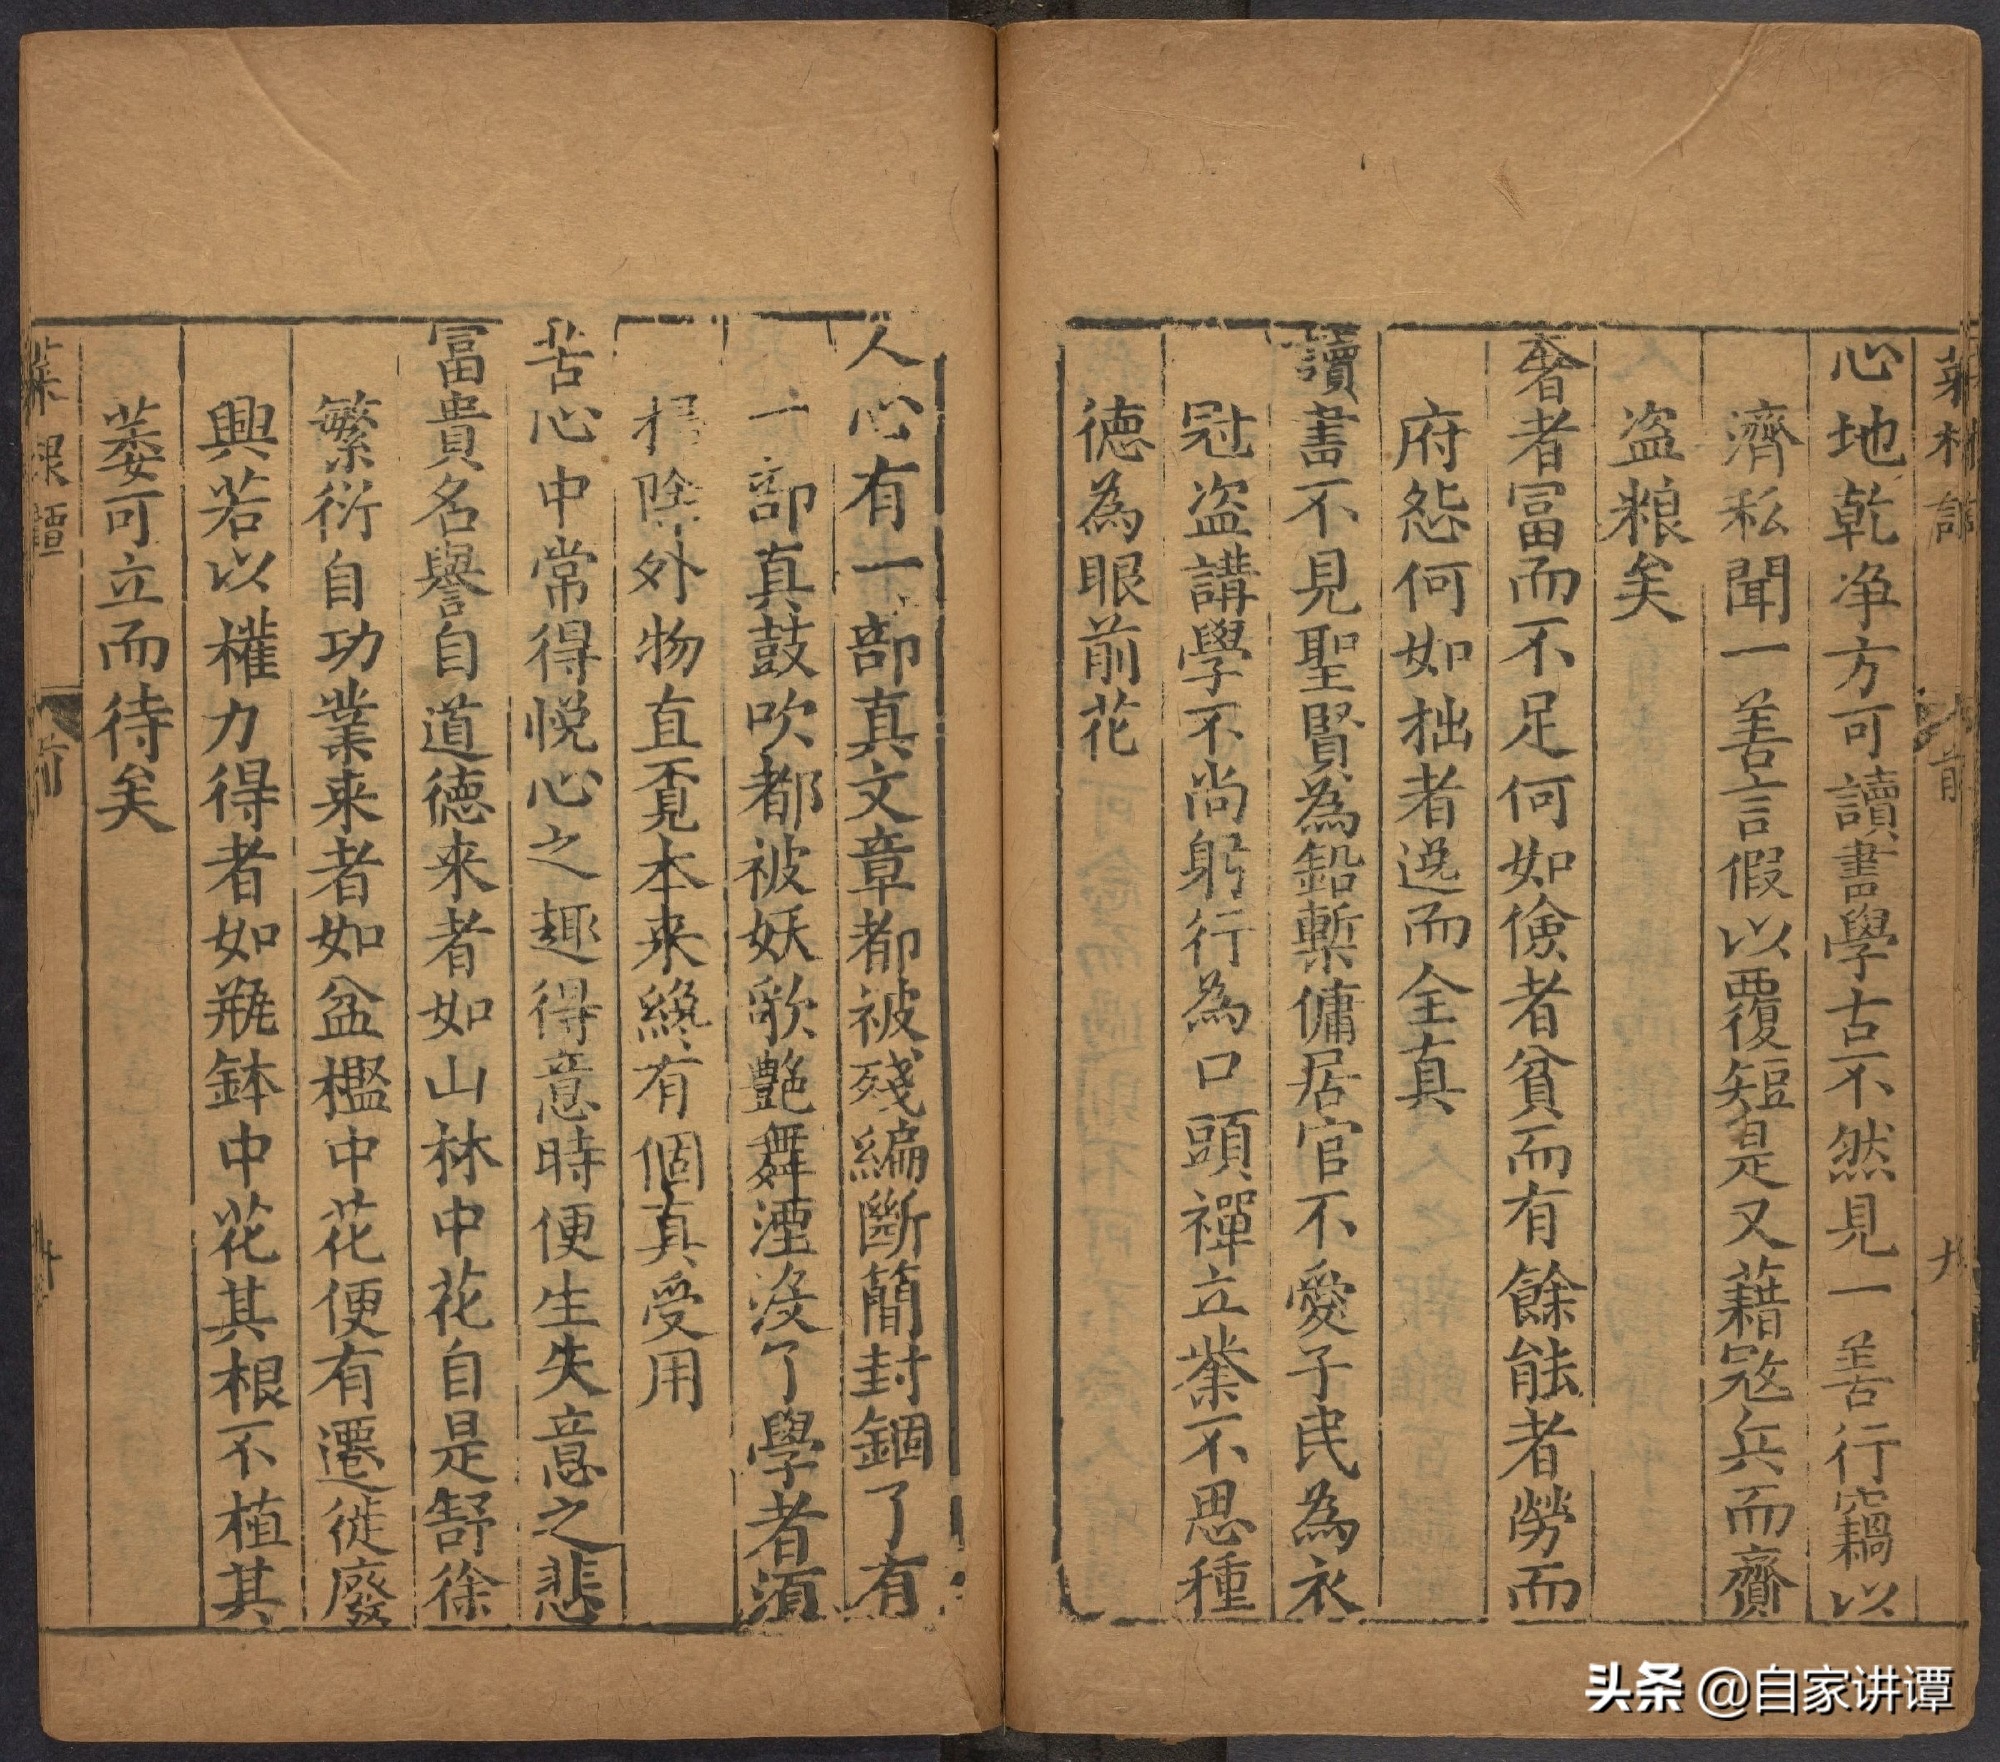 菜根譚 前 九
心地乾净方可讀書學古不然見一善行竊以
濟私聞一善言假以覆短是又藉宼兵而齎
盗粮矣
奢者富而不足何如儉者貧而有餘能者勞而
府怨何如拙者逸而全真
讀書不見聖賢為鉛槧傭居官不愛子民為衣
冠盗講學不尚躬行為口頭禪立業不思種
德為眼前花
人心有一部真文章都被殘編斷簡封錮了有
一部真鼓吹都被妖歌艷舞湮没了學者須
掃除外物直覔本来纔有個真受用
苦心中常得悦心之趣得意時便生失意之悲
富貴名譽自道德来者如山林中花自是舒徐
繁衍自功業来者如盆檻中花便有遷徙廢
興若以權力得者如瓶鉢中花其根不植其
萎可立而待矣
菜根譚 前
头条 @自家讲谭